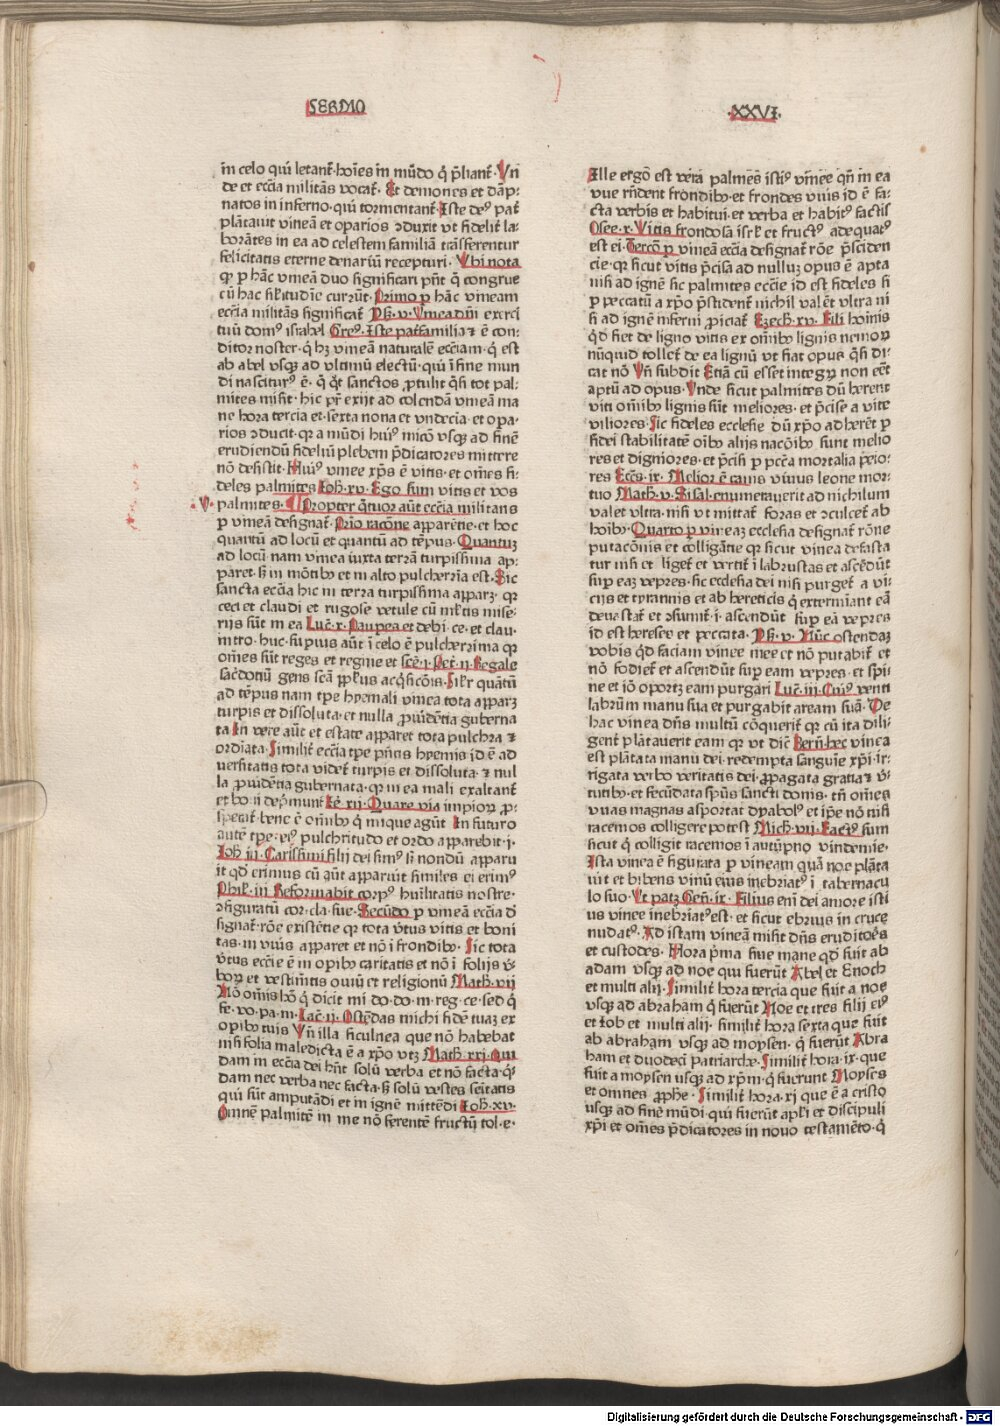 SERMO
.XXVI.
in celo qui letant̄·hoīes in mūdo q̄ p̄liant̄·Vñ
de et ecc̄ia militās vocat̄· Et demones et dāp̄-
natos in inferno·qui tormentant̄·Iste de⁹ pat̄
plātauit vineā et oparios ↄduxit vt fidelit̄ la-
borātes in ea ad celestem familiā trāsferentur
felicitatis eterne denariū recepturi· Vbi nota
ꝙ p̱ hāc vineā duo significari pn̄t q̄ congrue
cū hac sil̄itudīe currūt· Primo p̱ hāc vineam
ecc̄ia militās significat̄ Ps̄·v·Vinea dn̄i exerci
tuū dom⁹ israhel Greg⁹·Iste paterfamiliaꝫ ē con-
ditor noster·q̄ hꝫ vineā naturalē ecc̄iam·q̄ est
ab abel vsqꝫ ad vltimū electū·qui ī fine mun
di nascitur⁹ ē· q̄ q̄t sanctos ꝓtulit q̄si tot pal-
mites misit·hic pr̄ exijt ad colendā vineā ma
ne hora tercia et·sexta nona et vndecia·et opa-
rios ↄducit·qꝛ a mūdi hui⁹ inicō vsqꝫ ad finē
erudiendū fideliū plebem p̄dicatores mittere
nō desistit·Hui⁹ vinee xp̄s ē vitis·et om̄es fi-
deles palmites Ioh̄·xv·Ego sum vitis et vos
·V· palmites·¶Propter q̄tuor aūt ecc̄ia militans
p̱ vineā designat̄·Prīo racōne apparētie·et hoc
quantū ad locū et quantū ad tēpus·Quantuꝫ
ad locū nam vinea iuxta terrā turpissima ap-
paret·sꝫ in mōtibꝰ et in alto pulcherrīa est·Sic
sancta ecc̄ia hic in terra turpissima apparꝫ· qꝛ
ceci et claudi et rugose vetule cū ml̄tis mise-
rijs sūt in ea Luc̄·x·Paupes et debi·ce·et clau·
intro·huc·supius aūt ī celo ē pulcherrima qꝛ
om̄es sūt reges et regine et scē·j·Pet̄·ij·Regale
sac̄dotiū gens sc̄ā pp̱l̄us acq̄sicōis·Sil̄r quātū
ad tēpus nam tpe hyemali vinea tota apparꝫ
turpis et dissoluta·et nulla ꝓuidētia guberna
ta In vere aūt et estate apparet tota pulchra ꝫ
ordīata·Similit̄ ecc̄ia tpe pn̄tis hyemis id ē ad
uersitatis tota videt̄ turpis et dissoluta·ꝫ nul
la ꝓuidētia gubernata·qꝛ in ea mali exaltant̄
et bo·ij dep̄munt̄ Ie·xij·Quare via impioꝝ ꝓ-
sperat̄·bene ē om̄ibꝰ q̄ inique agūt In futuro
autē tpe·ei⁹ pulchritudo et ordo apparebit·j·
Ioh̄ iij·Carissimi filij dei sim⁹ sꝫ nondū apparu
it qd̄ erimus cū aūt apparuit similes ei erim⁹
Phil̄·iij Reformabit corp⁹ hūilitatis nostre·
ↄfiguratū cor·cla·sue·Secūdo p̱ vineā ecc̄ia d̄
signat̄·rōe existētie qꝛ tota v̄tus vitis et boni
tas·in vuis apparet et nō ī frondibꝰ·Sic tota
v̄tus ecc̄ie ē in opibꝰ caritatis et nō ī folijs v̄-
boꝝ et vestim̄tis ouiū et religionū Math̄·vij
Nō om̄is hō q̄ dicit mi do·do·in·reg·ce·sed q̄
fe·vo·pa·m·Iac̄·ij·Ostēdas michi fidē tuaꝫ ex
opibꝰ tuis Vñ illa ficulnea que nō habebat
nisi folia maledicta ē a xp̄o vtꝫ Math̄·xxj·Qui
dam in ecc̄ia dei hn̄t solū verba et nō facta·q̄
dam nec verba nec facta·sꝫ solū vestes seitatis
qui sūt amputādi et in ignē mittēdi Ioh̄·xv·
Omnē palmitē in me nō ferentē fructū tol·e·
Ille ergō est verā palmes̄ isti⁹ vinee qn̄ in ea
vue rn̄dent frondibꝰ·et frondes vuis id ē fa-
cta verbis et habitui·et verba et habit⁹ factis
Osee·x·Vitis frondosa isrl̄ et fruct⁹ adequat⁹
est ei·Tercō p̱ vineā ecc̄ia designat̄ rōe p̄sciden
cie·qꝛ sicut vitis p̄cisa ad nulluꝫ opus ē apta
nisi ad ignē sic palmites ecc̄ie id est fideles si
p̱ peccatū a xp̄o p̄scident̄ nichil valēt vltra ni
si ad ignē inferni ꝓiciat̄ Ezech̄·xv·Fili hoīnis
qd̄ fiet de ligno vitis ex om̄ibꝰ lignis nemoꝝ
nūquid tollet̄ de ea lignū vt fiat opus q̄si di-
cat nō Vñ subdit Etiā cū esset integꝝ non eēt
aptū ad opus·Vnde sicut palmites dū herent
viti om̄ibꝰ lignis sūt meliores·et p̄cise a vite
viliores·Sic fideles ecclesie dū xp̄o adherēt p̱
fidei stabilitatē oībꝰ alijs nacōibꝰ sunt melio
res et digniores·et p̄cisi p̱ pccā mortalia peio-
res Eccs̄·ix·Melior ē canis viuus leone mor-
tuo Math̄·v·Si sal euanuerit ad nichilum
valet vltra·nisi vt mittat̄ foras et ↄculcet̄ ab
hoībꝰ·Quarto p̱ vineaꝫ ecclesia designat̄ rōne
putacōnis et colligātie qꝛ sicut vinea defasta
tur nisi et liget̄ et vertit̄ ī labrustas et ascēdūt
sup eaꝫ vepres·sic ecclesia dei nisi purget̄ a vi-
cijs et tyrannis et ab hereticis q̄ extermīant eā
deuastat̄ et ↄsumit̄·i·ascendūt sup eā vepres
id est hereses et peccata·Ps̄·v·Nūc ostendaꝫ
vobis qd̄ faciam vinee mee et nō putabit̄ et
nō fodiet̄ et ascendūt sup eam vepres·et spi-
ne et iō oportꝫ eam purgari Luc̄·iij·Cui⁹ venti
labrūm manu sua et purgabit aream suā·De
hac vinea dn̄s multū cōquerit̄ qꝛ cū ita dili-
gent̄ plātauerit eam qꝛ vt dic̄ Bern̄·hec vinea
est plātata manu dei·redempta sanguīe xp̄i·ir-
rigata verbo veritatis dei·ꝓpagata gratiaꝫ v̄-
tutibꝰ·et fecūdata sp̄us sancti donis·tn̄ om̄es
vuas magnas asportat dyabol⁹ et ip̄e nō nisi
racemos colligere potest Mich̄·vij·Fact⁹ sum
sicut q̄ colligit racemos ī autūpno vindemie·
Ista vinea ē figurata p̱ vineam quā noe plāta
uit et bibens vinū eius inebriat⁹ ī tabernacu
lo suo·Vt patꝫ Gen̄·ix·Filius enī dei amore isti
us vinee inebriat⁹ est·et sicut ebrius in cruce
nudat⁹·Ad istam vineā misit dn̄s eruditoēs
et custodes·Hora p̄ma siue mane qd̄ fuit ab
adam vsqꝫ ad noe qui fuerūt Abel et Enoch
et multi alij·Similit̄ hora tercia que fuit a noe
vsqꝫ ad abraham q̄ fuerūt Noe et tres filij ei⁹
et Iob et multi alij·similit̄ hora sexta que fuit
ab abraham vsqꝫ ad moysen·q̄ fuerūt Abra
ham et duodecī patriarche·Similit̄ hora·ix·que
fuit a moysen vsqꝫ ad xp̄m·q̄ fuerunt Moyses
et omnes ꝓph̄e·Similit̄ hora·xj·que ē a cristo
vsqꝫ ad finē mūdi·qui fuerūt apl̄i et discipuli
xp̄i et om̄es p̄dicatores in nouo testamēto·q̄
Digitalisierung gefördert durch die Deutsche Forschungsgemeinschaft - DFG